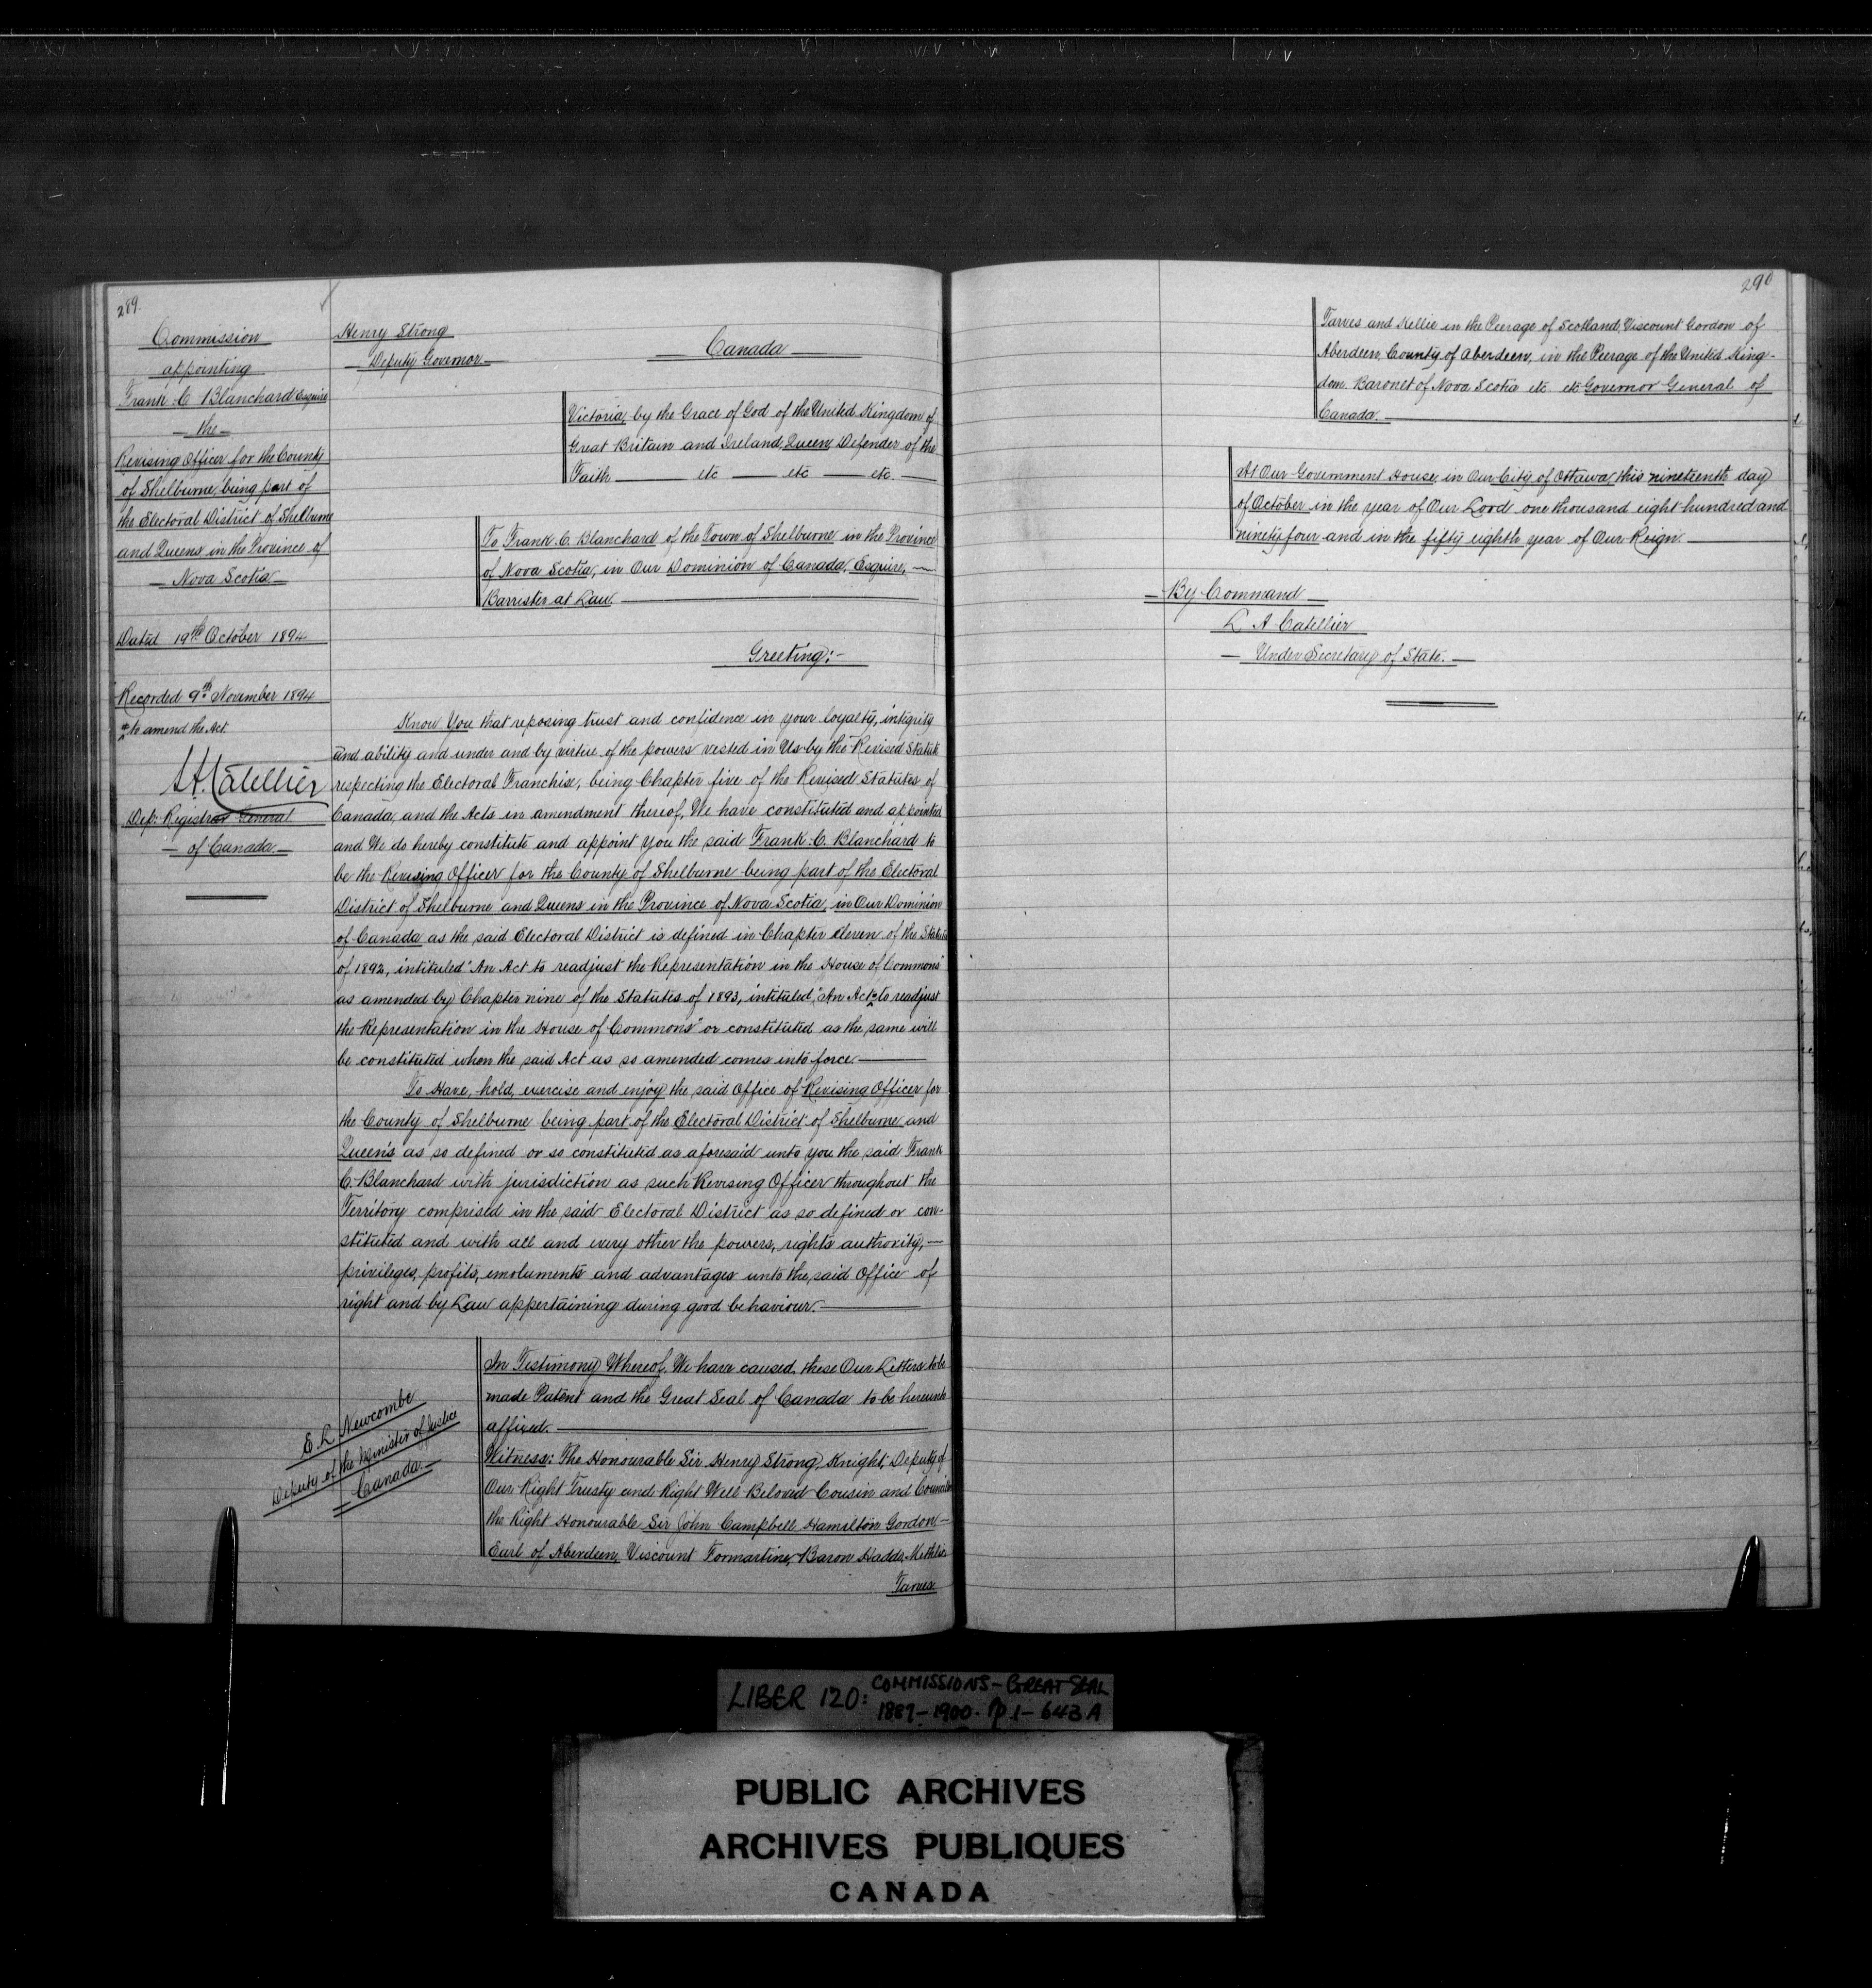 289.
Commission
appointing
Frank C Blanchard Esquire
the
Revising Officer for the County
of Shelburne, being part of
the Electoral District of Shelburne
and Queens in the Province of
Nova Scotia
Dated 19th October 1894
Recorded 9th November 1894
* to amend the Act.
Catellier
Dep: Registrar General
of Canada
Henry Strong
Deputy Governor
Canada
Victoria, by the Grace of God of the United Kingdom of
Great Britain and Ireland, Queen, Defender of the
Faith etc etc etc.
To Frank C. Blanchard of the Town of Shelburne in the Province
of Nova Scotia, in Our Dominion of Canada, Esquire,
Barrister at Law.
Greeting:-
Know You that reposing trust and confidence in your loyalty, integrity
and ability and under and by virtue of the powers vested in Us by the Revised Statute
respecting the Electoral Franchise, being Chapter five of the Revised Statutes of
Canada, and the Acts in amendment thereof, We have constituted and appointed
and We do hereby constitute and appoint you the said Frank C. Blanchard to
be the Revising Officer for the County of Shelburne being part of the Electoral
District of Shelburne and Queens in the Province of Nova Scotia, in Our Dominion
of Canada as the said Electoral District is defined in Chapter eleven of the Statutes
of 1892, intituled "An Act to readjust the Representation in the House of Commons"
as amended by Chapter nine of the Statutes of 1893, intituled, "An Act * to readjust
the Representation in the House of Commons" or constituted as the same will
be constituted when the said Act as so amended comes into force
To Have, hold, exercise and enjoy the said Office of Revising Officer for
the County of Shelburne being part of the Electoral District of Shelburne and
Queen's as so defined or so constituted as aforesaid unto you the said Frank
C. Blanchard with jurisdiction as such Revising Officer throughout the
Territory comprised in the said Electoral District as so defined or con-
stituted and with all and every other the powers, rights authority,
privileges, profits, emoluments and advantages unto the said Office of
right and by Law appertaining during good behaviour.
In Testimony Whereof, We have caused these Our Letters to be
made Patent and the Great Seal of Canada to be hereunto
affixed.
Witness: The Honourable Sir Henry Strong, Knight, Deputy of
Our Right Trusty and Right Well Beloved Cousin and Councillor
the Right Honourable Sir John Campbell Hamilton Gordon
Earl of Aberdeen, Viscount Formartine, Baron Haddo, Methlic,
Tarves
E L Newcombe
Deputy of the Minister of Justice
Canada
290
Tarves and Kellie in the Peerage of Scotland, Viscount Gordon of
Aberdeen, County of Aberdeen, in the Peerage of the United King-
dom. Baronet of Nova Scotia etc etc Governor General of
Canada.
At Our Government House, in Our City of Ottawa this nineteenth day
of October in the year of Our Lord one thousand eight hundred and
ninety four and in the fifty eighth year of Our Reign.
By Command
L A Catellier
Under Secretary of State.
LIBER 120: COMMISSIONS - GREAT SEAL
1889-1900. pp 1-643A
PUBLIC ARCHIVES
ARCHIVES PUBLIQUES
CANADA